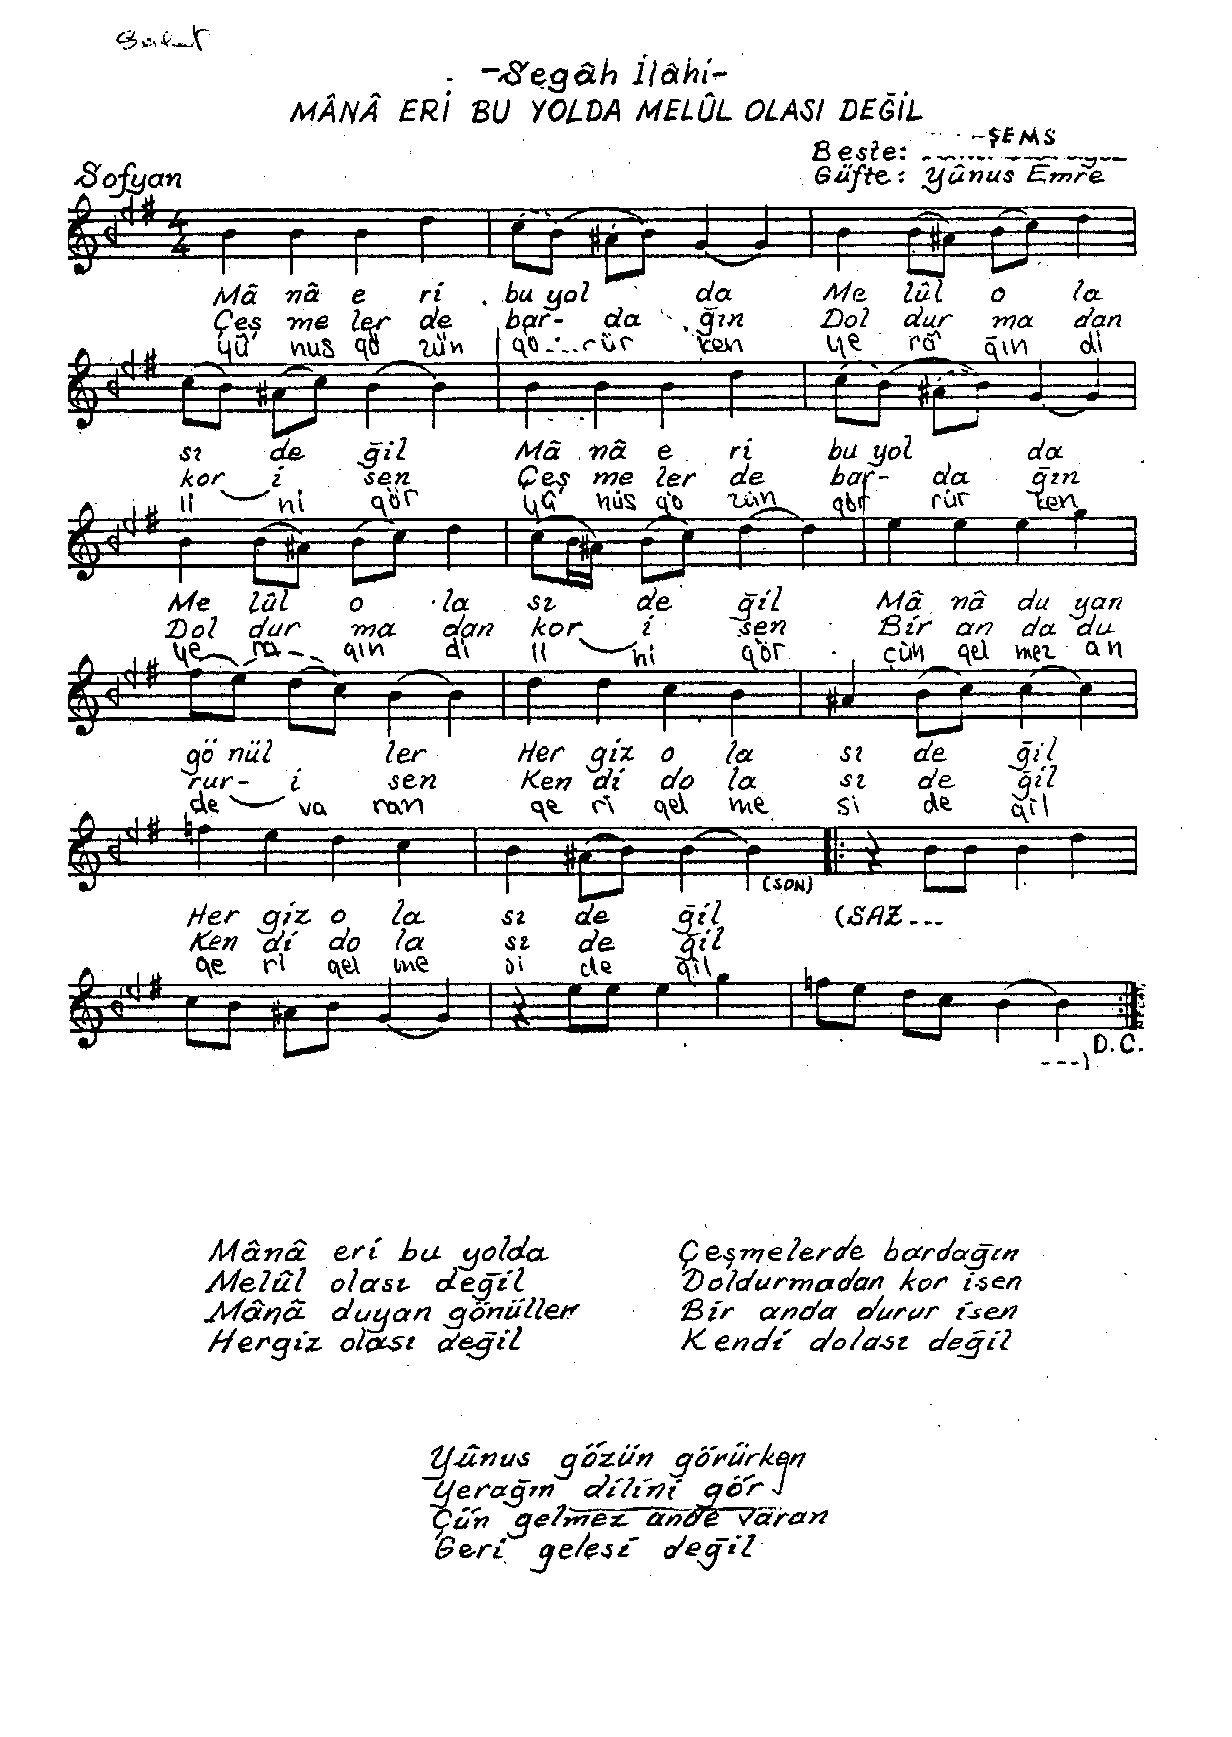 -Segâh İlâhi-
MÂNÂ ERİ BU YOLDA MELÛL OLASI DEĞİL
-ŞEMS
Beste:
Sofyan
Güfte: Yûnus Emre
Mâ nâ e ri bu yol da Me lûl o la
Çeş me ler de bar- da ğın Dol dur ma dan
Yû nus gö zün gö...rür ken ye râ ğın di
sı de ğil Mâ nâ e ri bu yol da
kor i sen Çeş me ler de bar- da ğın
li ni gör Yû nus gö zün gör rür ken
Me lûl o la sı de ğil Mâ nâ du yan
Dol dur ma dan kor i sen Bir an da du
ye ra ğın di li ni gör çün gel mez an
gö nül ler Her giz o la sı de ğil
rur- i sen Ken di do la sı de ğil
de va ran ge ri gel me si de ğil
(SON)
Her giz o la sı de ğil (SAZ---
Ken di do la sı de ğil
ge ri gel me si de ğil
---) D.C.
Mânâ eri bu yolda
Melûl olası değil
Mânâ duyan gönüller
Hergiz olası değil
Çeşmelerde bardağın
Doldurmadan kor isen
Bir anda durur isen
Kendi dolası değil
Yûnus gözün görürken
Yerağın dilini gör
Çün gelmez ande varan
Geri gelesi değil